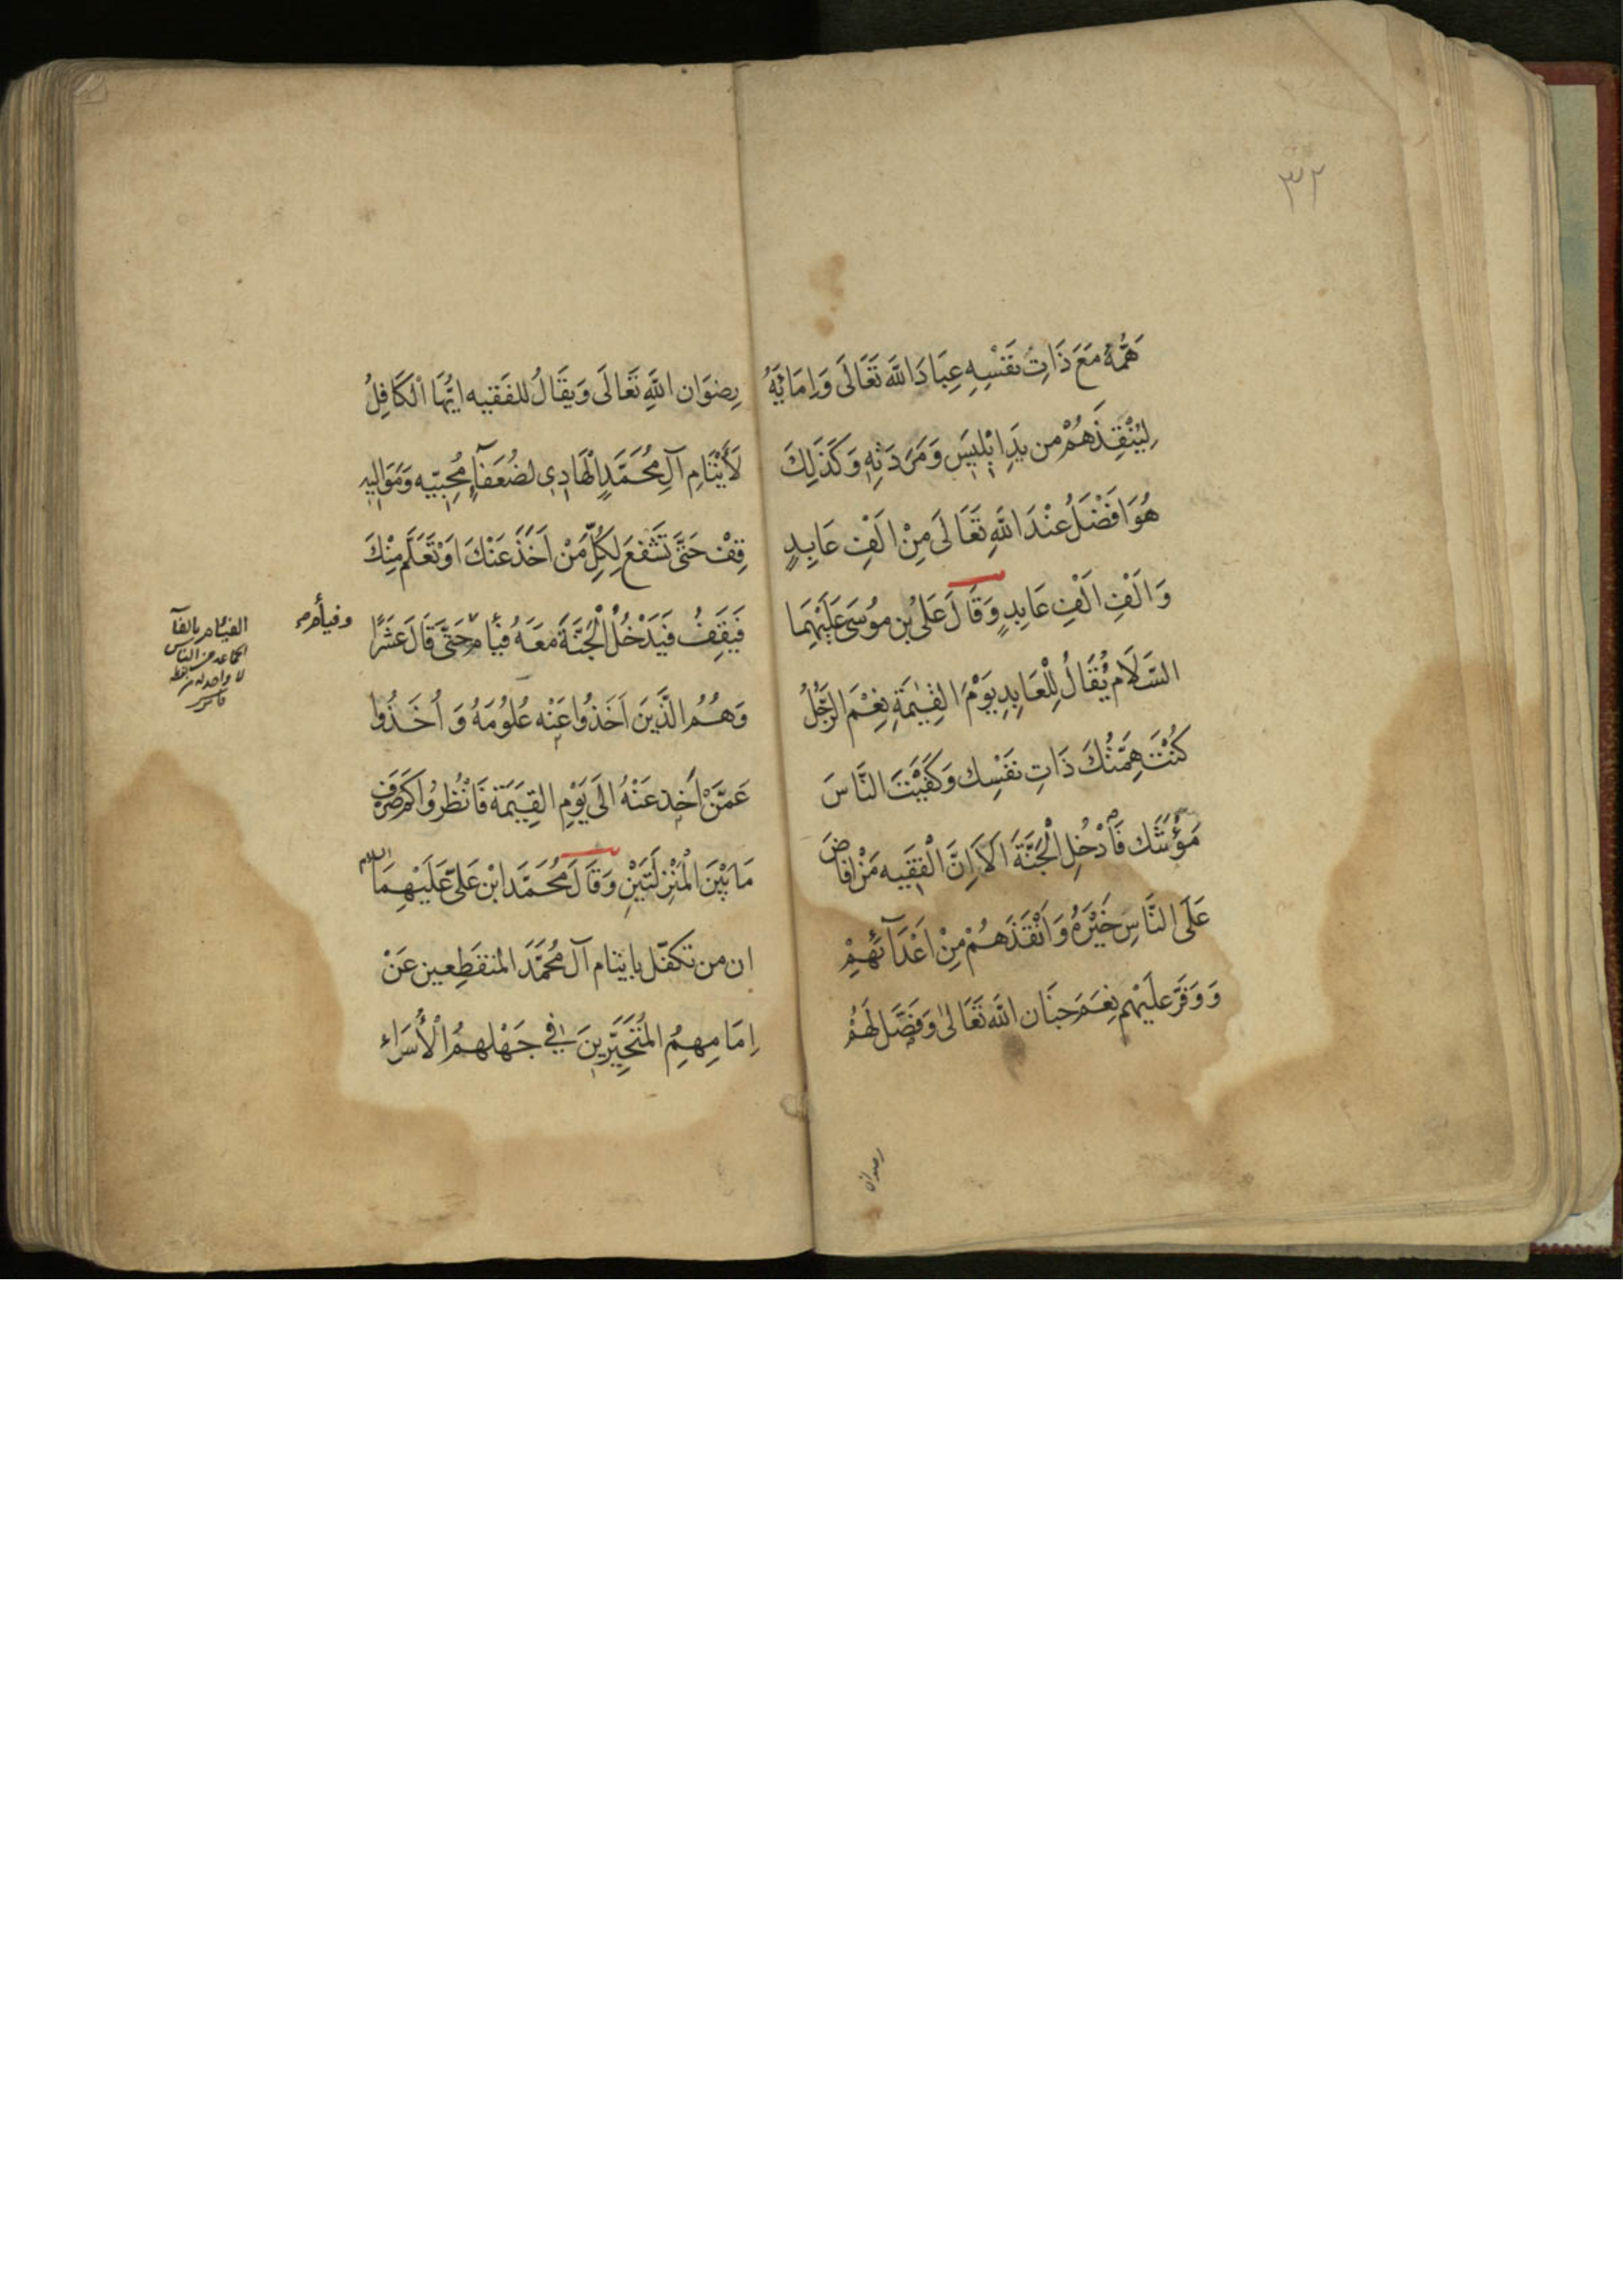 ٣٢
هَمُّهُ مَعَ ذَاتِ نَفْسِهِ عِبَادَ اللَّهِ تَعَالَى وَاِمَائِهِ
لِيُنْقِذَهُمْ من يَدِ اِبْلِيسَ وَمَرَدَتِهِ وَكَذَلِكَ
هُوَ اَفْضَلُ عِنْدَ اللَّهِ تَعَالَى مِنْ اَلْفِ عَابِدٍ
وَاَلْفِ اَلْفِ عَابِدٍ وَقَالَ عَلىُ بن مُوسَى عَلَيْهِمَا
السَّلَام يُقَالُ لِلْعَابِدِ يَوْمَ الْقِيٰمَةِ نِعْمَ الرَّجُلُ
كُنْتَ هِمَّتُكَ ذَاتِ نَفْسِك وَكَفَيْتَ النَّاسَ
مَؤُنَتَك فَادْخُلِ الْجَنَّةَ اَلَا اِنَّ الْفَقِيه مَنْ افاضَ
عَلَى النَّاسِ خَيْرَهُ وَاَنْقَذَهُمْ مِنْ اَعْدَآئِهِمْ
وَوَفَّرَ عَلَيْهِم نِعَمَ جِنَان اللَّه تَعَالىٰ وَفَضَّل لَهُمْ
رضوان
رِضْوَان اللَّهِ تَعَالَى وَيُقَالُ للفَقيه ايُّهَا الْكَافِلُ
لَأَيْتَامِ آلِ مُحَمَّدٍ الْهَادِى لضُعَفَآءِ مُحِبِّيه وَمَوَاليهِ
قِفْ حَتَّى تَشْفَعَ لِكُلِّ مَنْ اَخَذَ عَنْكَ اَوْ تَعَلَّم مِنْكَ
فَيَقِفُ فَيَدْخُلُ الْجَنَّةَ مَعَهُ فِئَامٌ حَتَّى قَالَ عَشْرًا
وَهُمُ الَّذَّينَ اَخَذُوا عَنْه عُلُومَهُ وَ اَخَذُوا
عَمَّنْ اَخِذ عَنْهُ الَى يَوْمِ القِيَمَة فَانْظُرُوا كَمْ صَرَفَ
مَا بَيْنَ الْمَنْزِلَتَيْنِ وَقَالَ مُحَمَّد ابْن عَلىّ عَلَيْهِمَا السلام
ان من تكفّل بايتام آل مُحَمَّدَ المنقَطِعين عَنْ
اِمَامِهِمُ المُتَحَيِّرِينَ في جَهْلهمُ الْأُسَرَاءِ
الفئام بالفآ
الجماعة من الناس
لا واحد له من لفظه